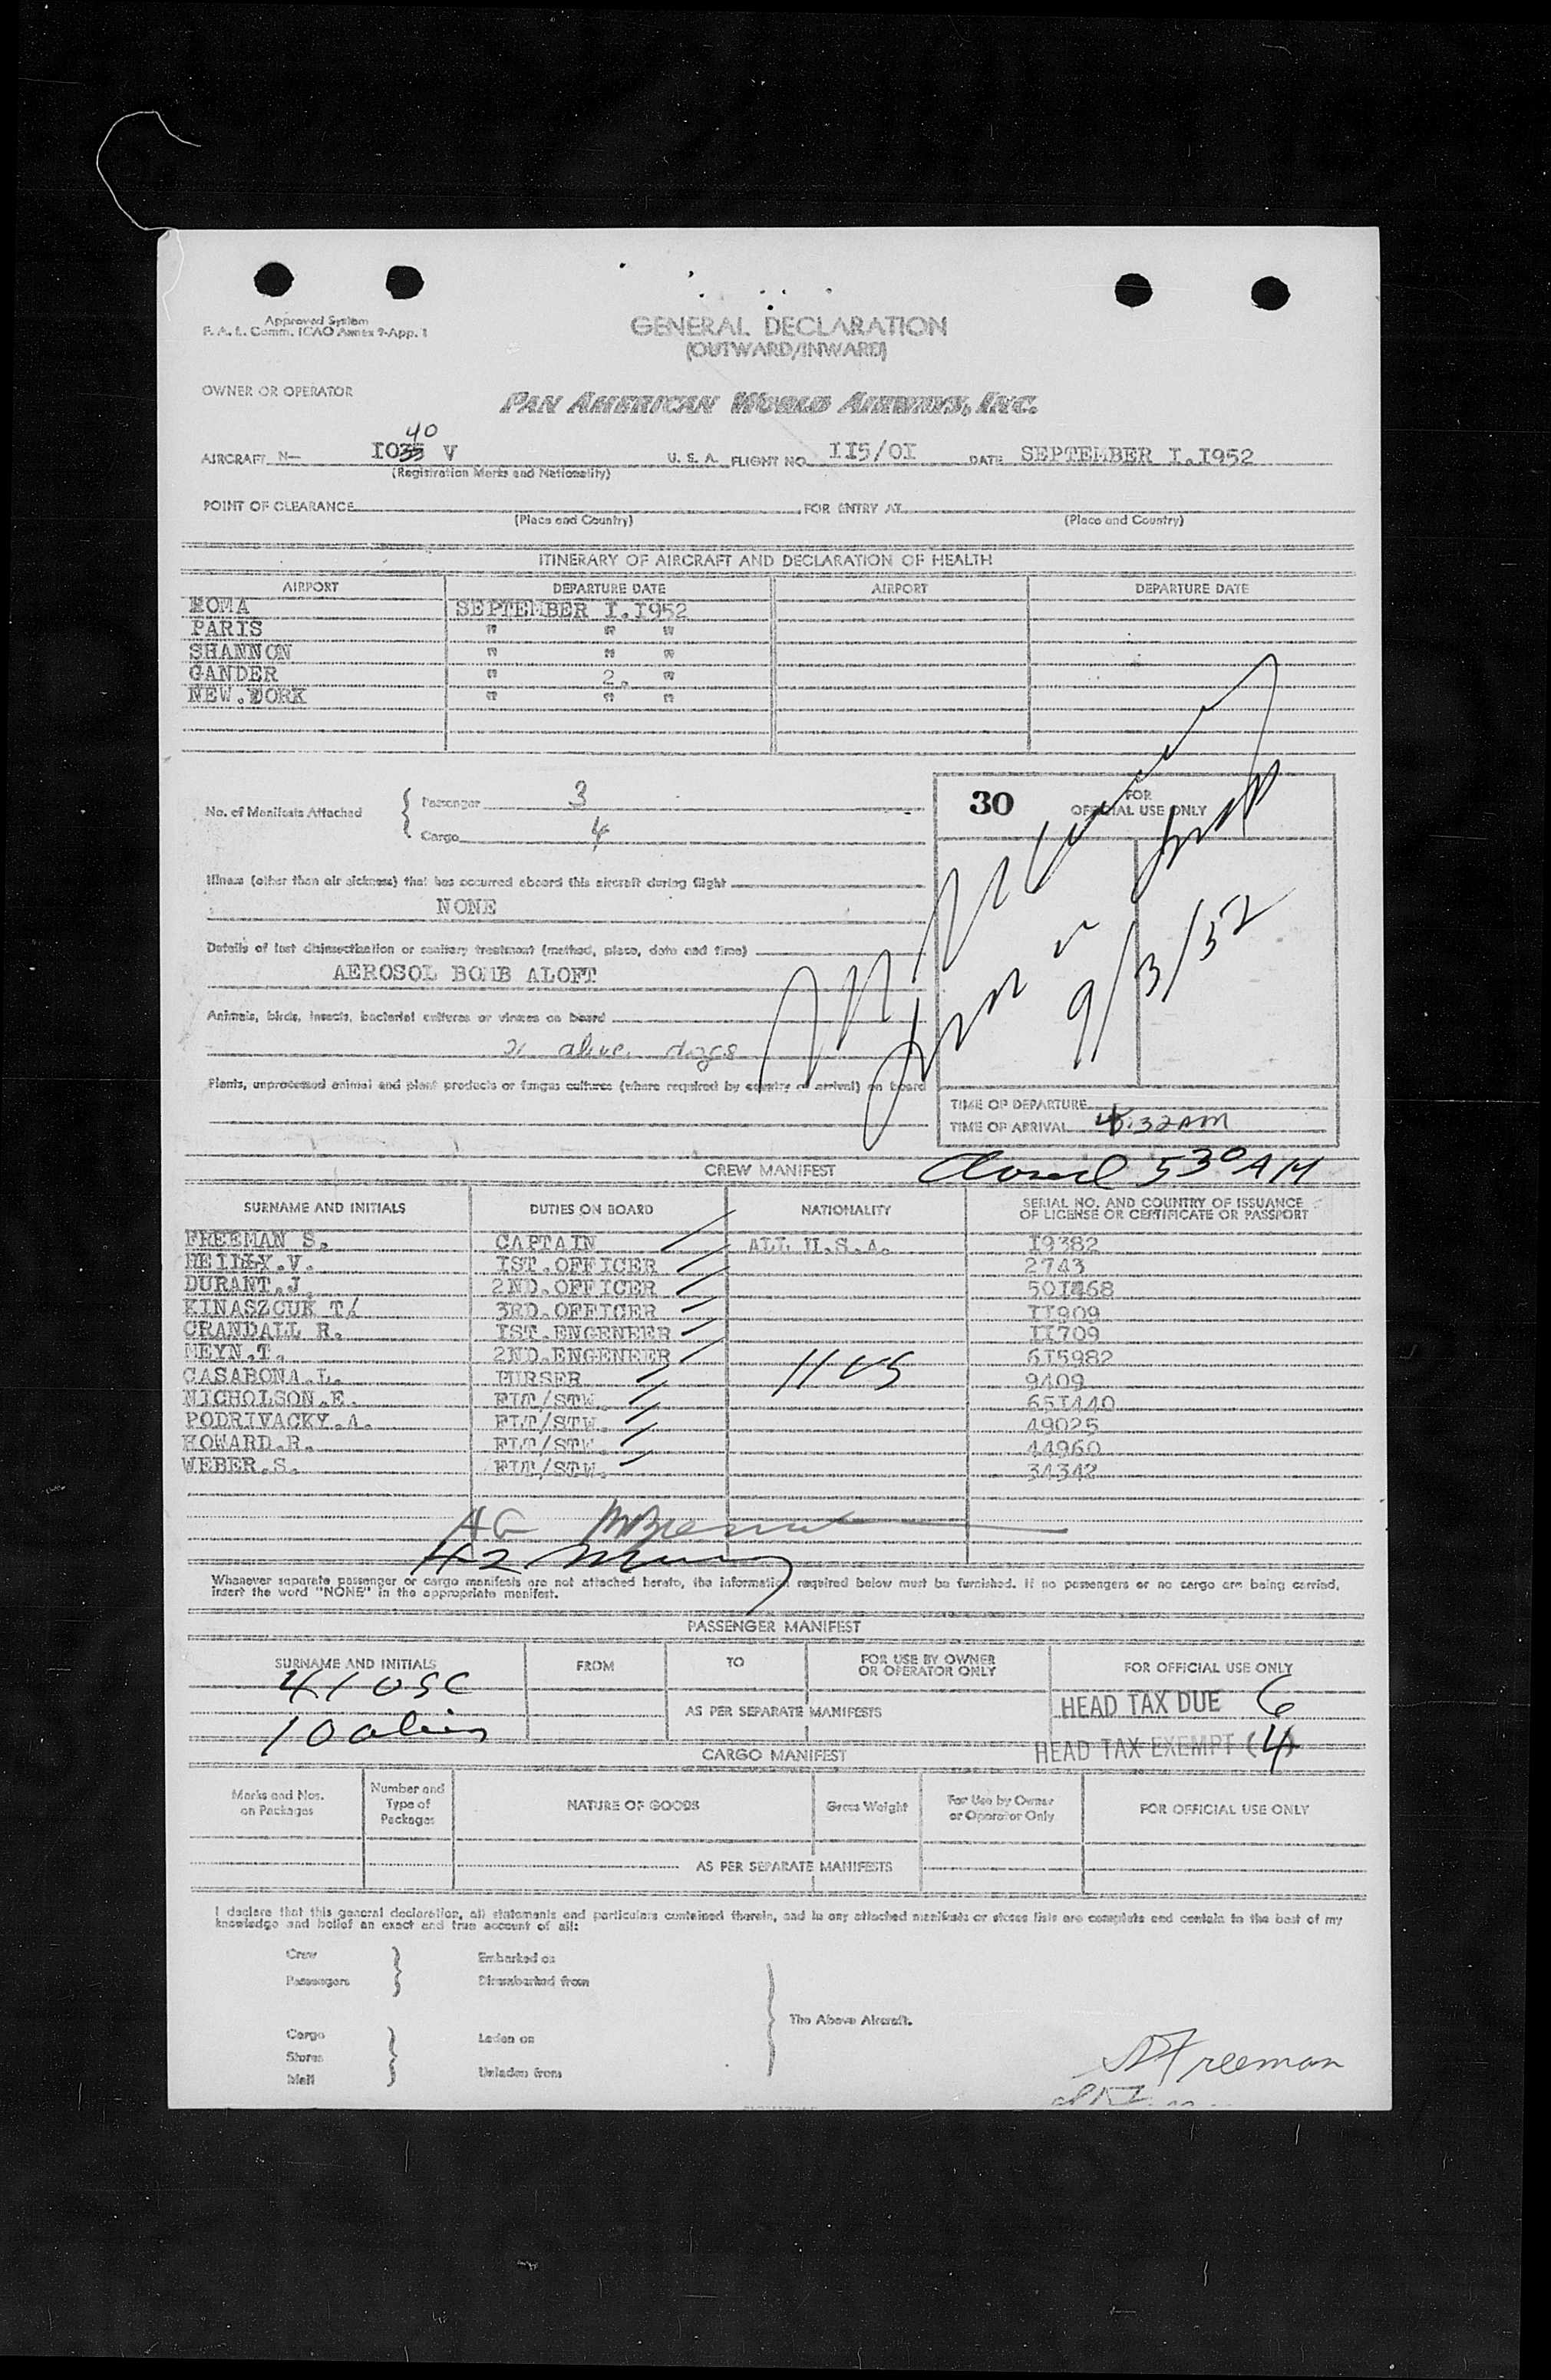 Approved System
F. A. L. Comm. ICAO Annex 9-App. 1
GENERAL DECLARATION
(OUTWARD/INWARD)
OWNER OR OPERATOR
PAN AMERICAN WORLD AIRWAYS, INC.
40
AIRCRAFT N- IO35 V U. S. A. FLIGHT NO. II5/OI DATE SEPTEMBER I.I952
(Registration Marks and Nationality)
POINT OF CLEARANCE FOR ENTRY AT
(Place and Country) (Place and Country)
ITINERARY OF AIRCRAFT AND DECLARATION OF HEALTH
AIRPORT DEPARTURE DATE AIRPORT DEPARTURE DATE
ROMA SEPTEMBER I.I952
PARIS " " "
SHANNON " " "
GANDER " 2. "
NEW.YORK " " "
No. of Manifests Attached
Passenger 3
Cargo 4
30 FOR OFFICIAL USE ONLY
Illness (other than air sickness) that has occurred aboard this aircraft during flight
NONE
Details of last disinsectization or sanitary treatment (method, place, date and time)
AEROSOL BOMB ALOFT
9/3/52
Animals, birds, insects, bacterial cultures or viruses on board
alive dogs
Plants, unprocessed animal and plant products or fungus cultures (where required by country of arrival) on board
TIME OF DEPARTURE
TIME OF ARRIVAL 4:32AM
Closed 530 AM
CREW MANIFEST
SURNAME AND INITIALS DUTIES ON BOARD NATIONALITY SERIAL NO. AND COUNTRY OF ISSUANCE OF LICENSE OR CERTIFICATE OR PASSPORT
FREEMAN S. CAPTAIN ALL U.S.A. I9382
IST.OFFICER 2743
DURANT.J. 2ND.OFFICER 50I468
KINASZCUK T. 3RD.OFFICER II909
CRANDALL R. IST.ENGENEER II709
MEYN.T. 2ND.ENGENEER 6I5982
CASABONA.L. PURSER 11 US 9409
NICHOLSON.E. FLT/STW. 65I440
PODRIVACKY.A. FLT/STW. 49025
HOWARD.R. FLT/STW. 44960
WEBER.S. FLT/STW. 34342
Whenever separate passenger or cargo manifests are not attached hereto, the information required below must be furnished. If no passengers or no cargo are being carried,
insert the word "NONE" in the appropriate manifest.
PASSENGER MANIFEST
SURNAME AND INITIALS FROM TO FOR USE BY OWNER OR OPERATOR ONLY FOR OFFICIAL USE ONLY
41 USC
AS PER SEPARATE MANIFESTS HEAD TAX DUE 6
10 aliens
HEAD TAX EXEMPT (4)
CARGO MANIFEST
Marks and Nos. on Packages Number and Type of Packages NATURE OF GOODS Gross Weight For Use by Owner or Operator Only FOR OFFICIAL USE ONLY
AS PER SEPARATE MANIFESTS
I declare that this general declaration, all statements and particulars contained therein, and in any attached manifests or stores lists are complete and contain to the best of my
knowledge and belief an exact and true account of all:
Crew Embarked on
Passengers Disembarked from
The Above Aircraft.
Cargo Laden on
Stores
Mail Unladen from
S Freeman